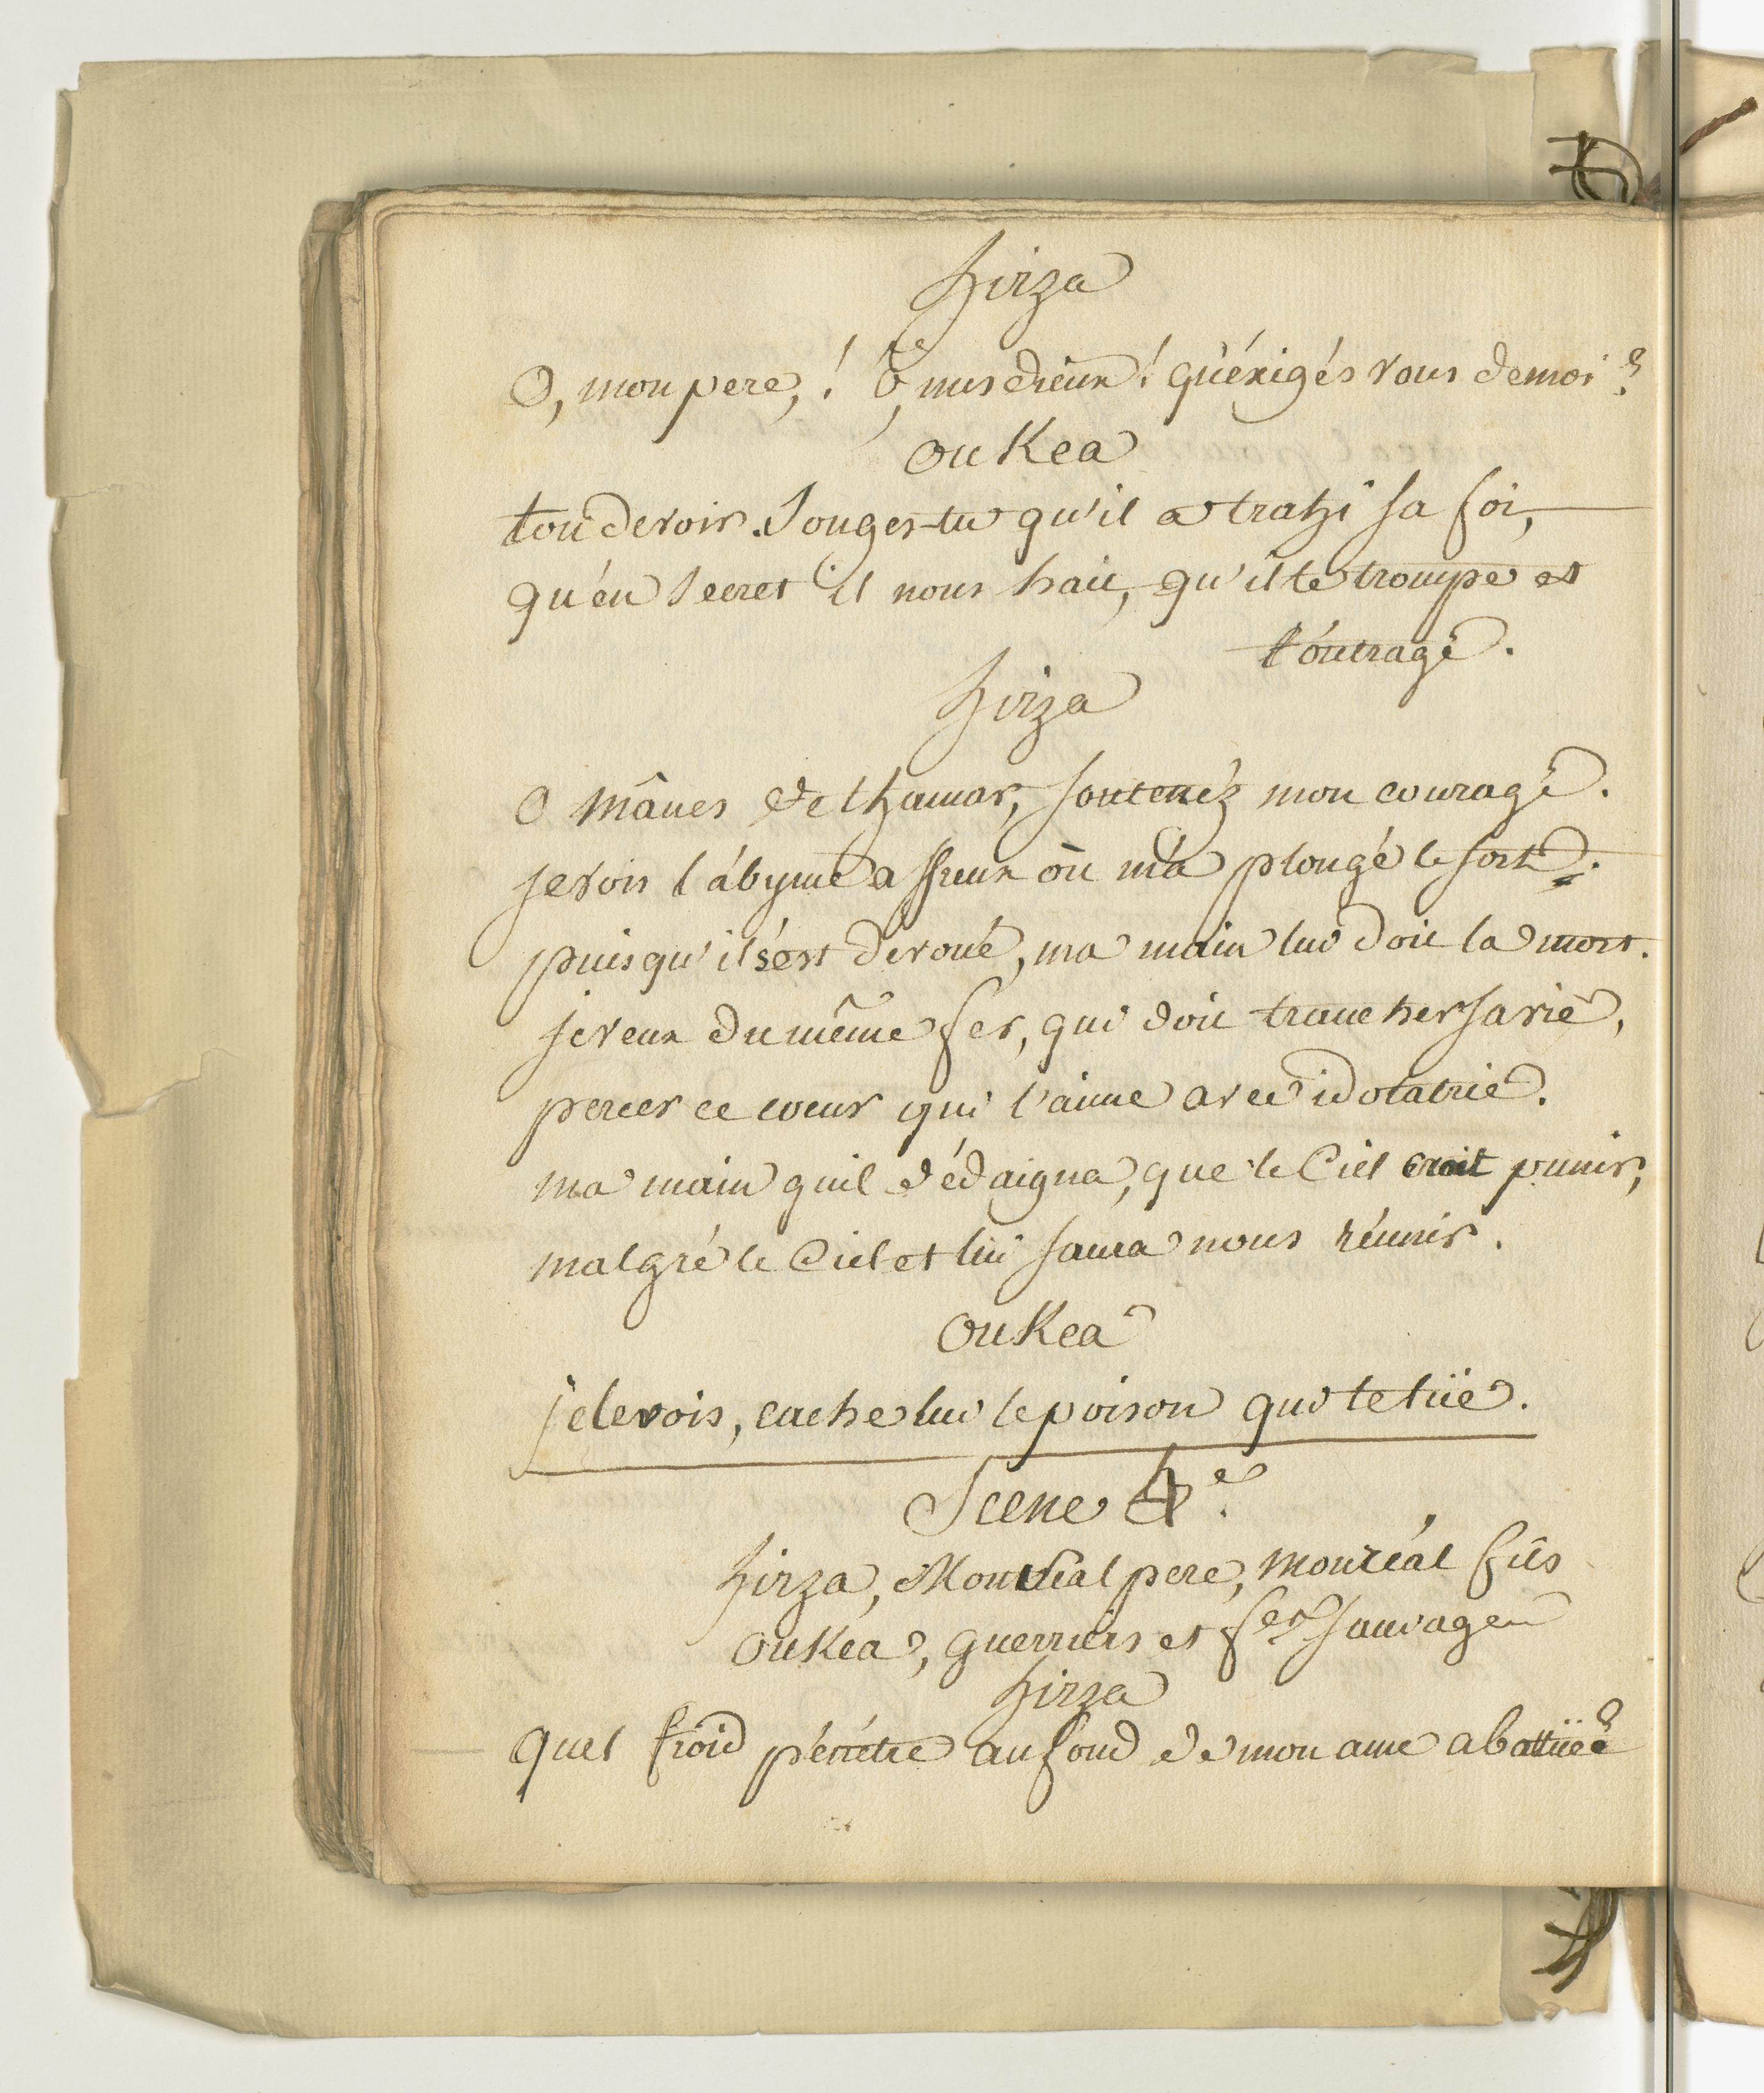 hirza
O, mon pere, ! ô, mes dieux ! qu'éxigés vous de moi ?
ouKea
ton devoir. Songes-tu qu'il a trahi sa foi,
qu'én secret il nous hait, qu'il te trompe et
t'óutrage.
hirza
O mânes de thamar, soutenéz mon courage.
je vois l'ábyme affreux où m'a plongé le sort.
puisqu'il s'est devoué, ma main lui doit la mort.
je veux du même fer, qui doit trancher sa vie,
percer ce coeur qui l'aime avec idolatrie.
ma main quil dédaigna, que le Ciel croit punir,
malgré le Ciel et lui saura nous réunir.
ouKea
je le vois, cache lui le poison qui te tüe.
Scene 4e.
hirza, Montréal pere, monréal fils
ouKea, guerriers et fes sauvages
hirza
quel froid pénétre au fond de mon ame abattüe ?